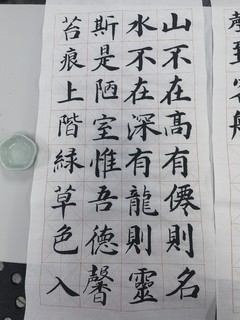 山不在高有僊則名
水不在深有龍則靈
斯是陋室惟吾德馨
苔痕上階緑草色入